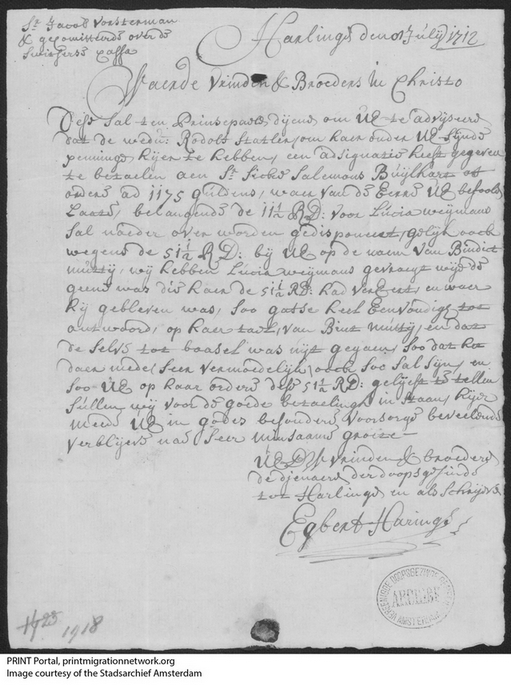 Sr. Jacob Voesterman
& gecomitterde over de
Switsers Casse
Harlinge den July 1712
Waerde Vrinden & Broeders in Christo
Dese Sal ten Prinsepaele dijene om UE te adviseere
dat de wedue Rodolf Statler, om haer onder UE Sijnde
penninge hijer te hebben, een adsignatie heeft gegeven
te betaelen aen Sr. Sicke Salemons Buijlkart of
ordere ad 1175 guldens, waer van de Eerse UE befoole
Laate, belangende de 11½ RD: voor Lucia weijmans
Sal naeder over worden gedisponeert, gelijk oock
wegens de 51½ RD: bij UE op de naem van Bindict
mutty, wij hebben Lucia weijmans gevraegt wije de
geene was die haer de 51½ RD: had vereert, en waer
hij gebleven was, Soo gafse heel Eenvoudigh tot
antwoord, op haer tael, van Bint mutty, en dat
de selve tot baasel was
daer mede Seer vermoedelijck oock Soo Sal Sijn, en
Soo UE op haar ordere dese 51½ RD: gelijeft te tellen
Sullen wij voor de goede betaelinge in staan, hijer
mede UE in godes besondere voorsorge beveelende
verblijve nae Seer minsaame groete
UE DW vrinden & broeders
de dijenaers der doopsgesinde
tot Harlinge en als Schrijver
Egbert Haringh
1723
1918
VEREENIGDE DOOPSGEZINDE GEMEENTE
ARCHIEF
AMSTERDAM
PRINT Portal, printmigrationnetwork.org
Image courtesy of the Stadsarchief Amsterdam